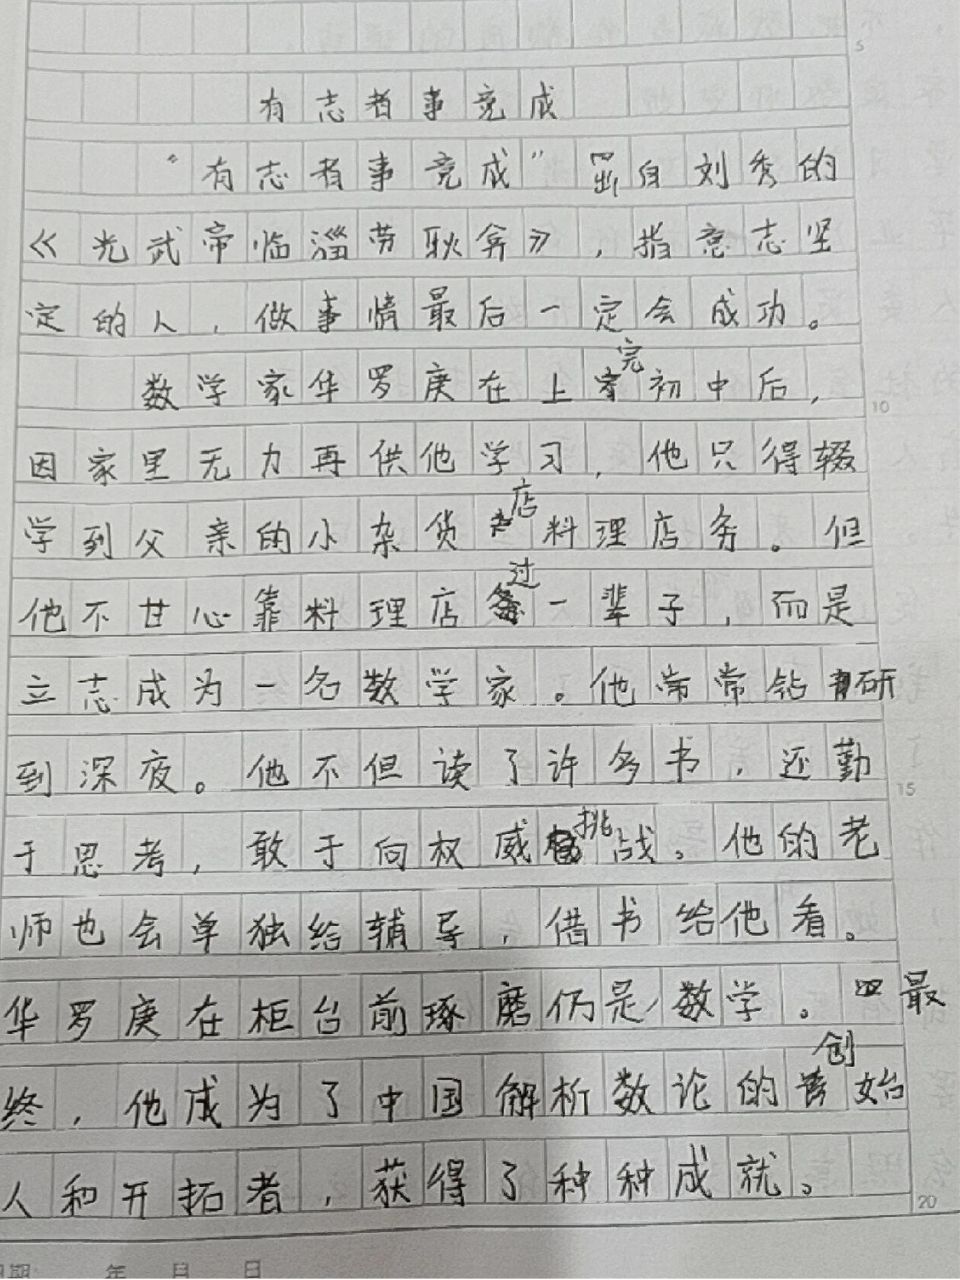 5
有志者事竟成
“有志者事竟成”出自刘秀的
《光武帝临淄劳耿弇》，指意志坚
定的人，做事情最后一定会成功。
数学家华罗庚在上完初中后，
10
因家里无力再供他学习，他只得辍
学到父亲的小杂货店料理店务。但
他不甘心靠料理店过一辈子，而是
立志成为一名数学家。他常常钻研
到深夜。他不但读了许多书，还勤
15
于思考，敢于向权威挑战。他的老
师也会单独给辅导，借书给他看。
华罗庚在柜台前琢磨仍是数学。最
终，他成为了中国解析数论的创始
人和开拓者，获得了种种成就。
20
期: 年 月 日